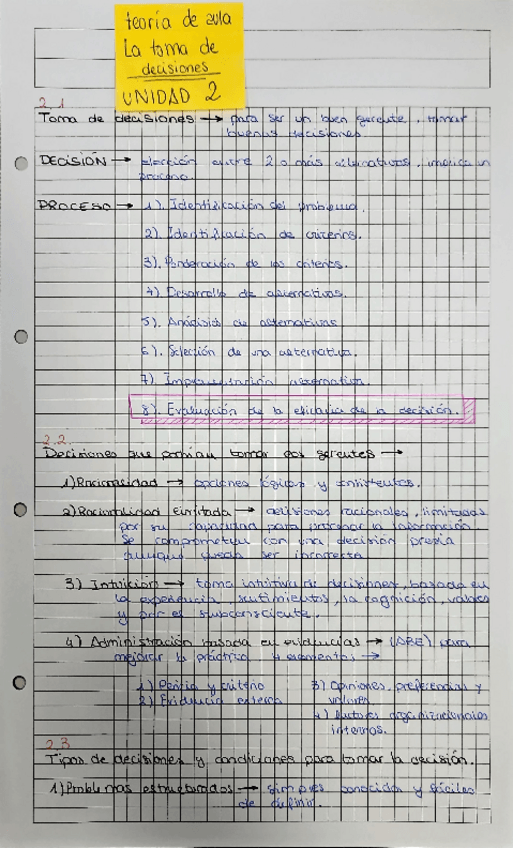 teoría de aula
La toma de
decisiones
UNIDAD 2
2.1
Toma de decisiones → para ser un buen gerente, tomar
buenas decisiones.
DECISIÓN → elección entre 2 o más alternativas, implica un
proceso.
PROCESO → 1). Identificación del problema.
2). Identificación de criterios.
3). Ponderación de los criterios.
4). Desarrollo de alternativas.
5). Análisis de alternativas
6). Selección de una alternativa.
7). Implementación alternativa.
8). Evaluación de la eficacia de la decisión.
2.2.
Decisiones que podrían tomar los gerentes →
1) Racionalidad → opciones lógicas y consistentes.
2) Racionalidad limitada → decisiones racionales, limitadas
por su capacidad para procesar la información.
Se comprometen con una decisión previa
aunque pueda ser incorrecta
3) Intuición → toma intuitiva de decisiones, basada en
la experiencia, sentimientos, la cognición, valores
y por el subconsciente.
4) Administración basada en evidencias → (ABE), para
mejorar la práctica. 4 elementos →
1) Pericia y criterio
2) Evidencia externa
3) Opiniones, preferencias y
valores.
4) factores organizacionales
internos.
2.3
Tipos de decisiones y condiciones para tomar la decisión.
1) Problemas estructurados → simples conocidos y fáciles
de definir.